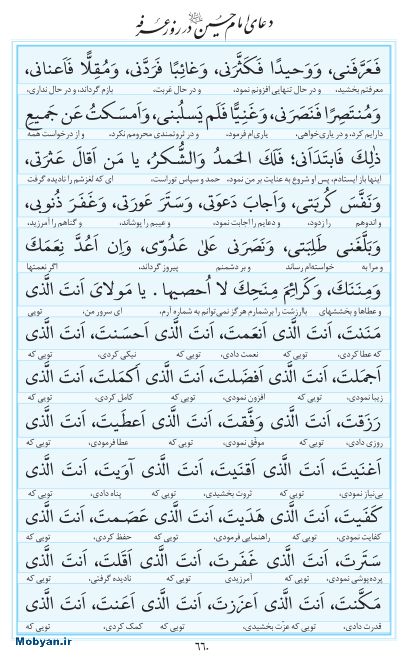 دعای امام حسین علیه‌السلام در روز عرفه
فَعَرَّفَنی، وَوَحیدًا فَکَثَّرَنی، وَغَائِبًا فَرَدَّنی، وَمُقِلًّا فَاَعنانی،
معرفتم بخشید، و در حال تنهایی افزونم نمود، و در حال غربت، بازم گرداند، و در حال نداری،
وَمُنتَصِرًا فَنَصَرَنی، وَغَنِیًّا فَلَم یَسلُبنی، وَاَمسَکتُ عَن جَمیعِ
دارایم کرد، و در یاری‌خواهی، یاری‌ام فرمود، و در ثروتمندی محرومم نکرد. و از درخواست همه
ذلِکَ فَابتَدَاَنی؛ فَلَکَ الحَمدُ وَالشُّکرُ، یا مَن اَقالَ عَثرَتی،
اینها باز ایستادم، پس او شروع به عنایت بر من نمود، حمد و سپاس توراست، ای که لغزشم را نادیده گرفت
وَنَفَّسَ کُربَتی، وَاَجابَ دَعوَتی، وَسَتَرَ عَورَتی، وَغَفَرَ ذُنوبی،
و اندوهم را زدود، و دعایم را اجابت نمود، و عیبم را پوشاند، و گناهم را آمرزید،
وَبَلَّغَنی طَلِبَتی، وَنَصَرَنی عَلیٰ عَدُوّی، وَاِن اَعُدَّ نِعَمَکَ
و مرا به خواسته‌ام رساند و بر دشمنم پیروز گرداند، اگر نعمتها
وَمِنَنَکَ، وَکَرائِمَ مِنَحِکَ لا اُحصیها. یا مَولایَ اَنتَ الَّذی
و عطاها و بخششهای باارزشت را برشمارم هرگز نمی‌توانم به شماره آرم، ای سرور من، تویی
مَنَنتَ، اَنتَ الَّذی اَنعَمتَ، اَنتَ الَّذی اَحسَنتَ، اَنتَ الَّذی
که عطا کردی، تویی که نعمت دادی، تویی که نیکی کردی، تویی که
اَجمَلتَ، اَنتَ الَّذی اَفضَلتَ، اَنتَ الَّذی اَکمَلتَ، اَنتَ الَّذی
زیبا نمودی، تویی که افزون نمودی، تویی که کامل کردی، تویی که
رَزَقتَ، اَنتَ الَّذی وَفَّقتَ، اَنتَ الَّذی اَعطَیتَ، اَنتَ الَّذی
روزی دادی، تویی که موفق نمودی، تویی که عطا فرمودی، تویی که
اَغنَیتَ، اَنتَ الَّذی اَقنَیتَ، اَنتَ الَّذی آوَیتَ، اَنتَ الَّذی
بی‌نیاز نمودی، تویی که ثروت بخشیدی، تویی که پناه دادی، تویی که
کَفَیتَ، اَنتَ الَّذی هَدَیتَ، اَنتَ الَّذی عَصَمتَ، اَنتَ الَّذی
کفایت نمودی، تویی که راهنمایی فرمودی، تویی که حفظ کردی، تویی که
سَتَرتَ، اَنتَ الَّذی غَفَرتَ، اَنتَ الَّذی اَقَلتَ، اَنتَ الَّذی
پرده‌پوشی نمودی، تویی که آمرزیدی تویی که نادیده گرفتی، تویی که
مَکَّنتَ، اَنتَ الَّذی اَعزَزتَ، اَنتَ الَّذی اَعَنتَ، اَنتَ الَّذی
قدرت دادی، تویی که عزّت بخشیدی، تویی که کمک کردی، تویی که
۶۶۰
Mobyan.ir